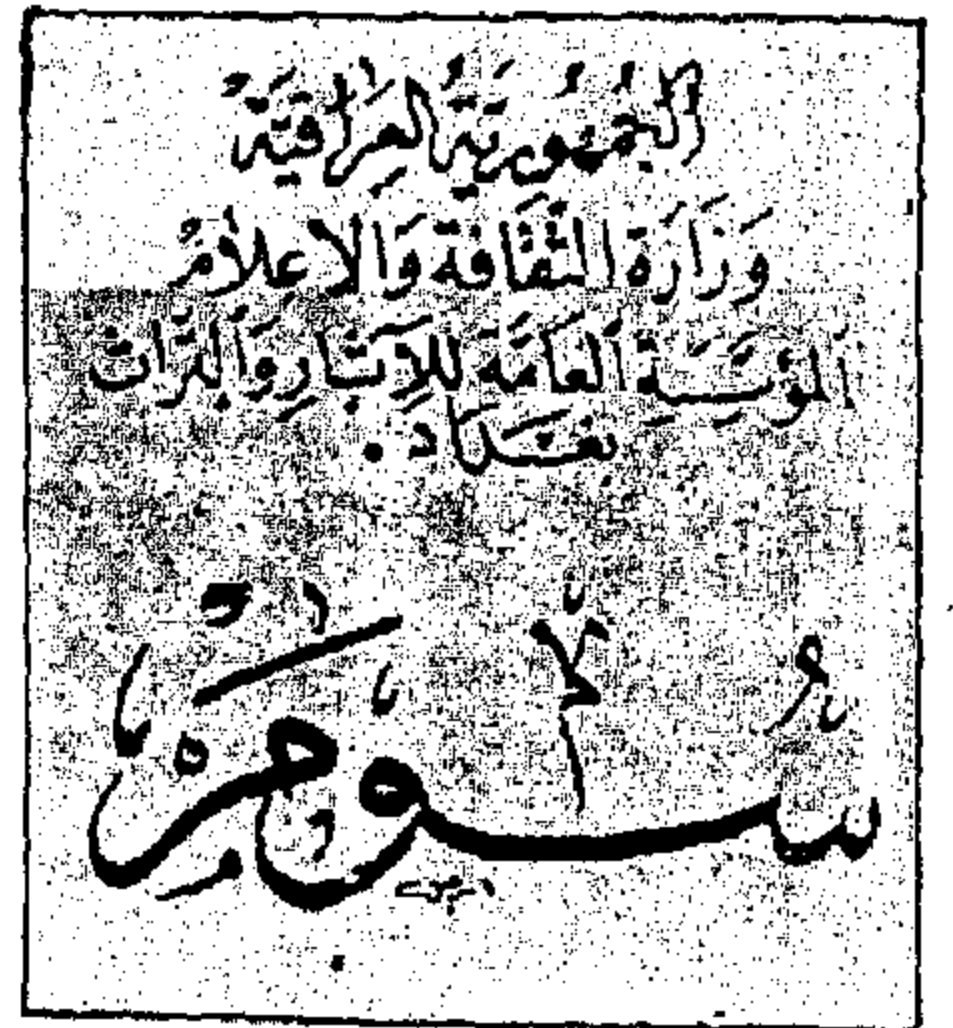 الجُمْهُورِيَّةُ العِرَاقِيَّةُ
وَزَارَةُ الثَّقَافَةِ وَالاعِلامُ
المُؤَسَّسَةُ العَامَّةُ لِلآثَارِ وَالتُّرَاثِ
بَغْدَاد.
سُومَر